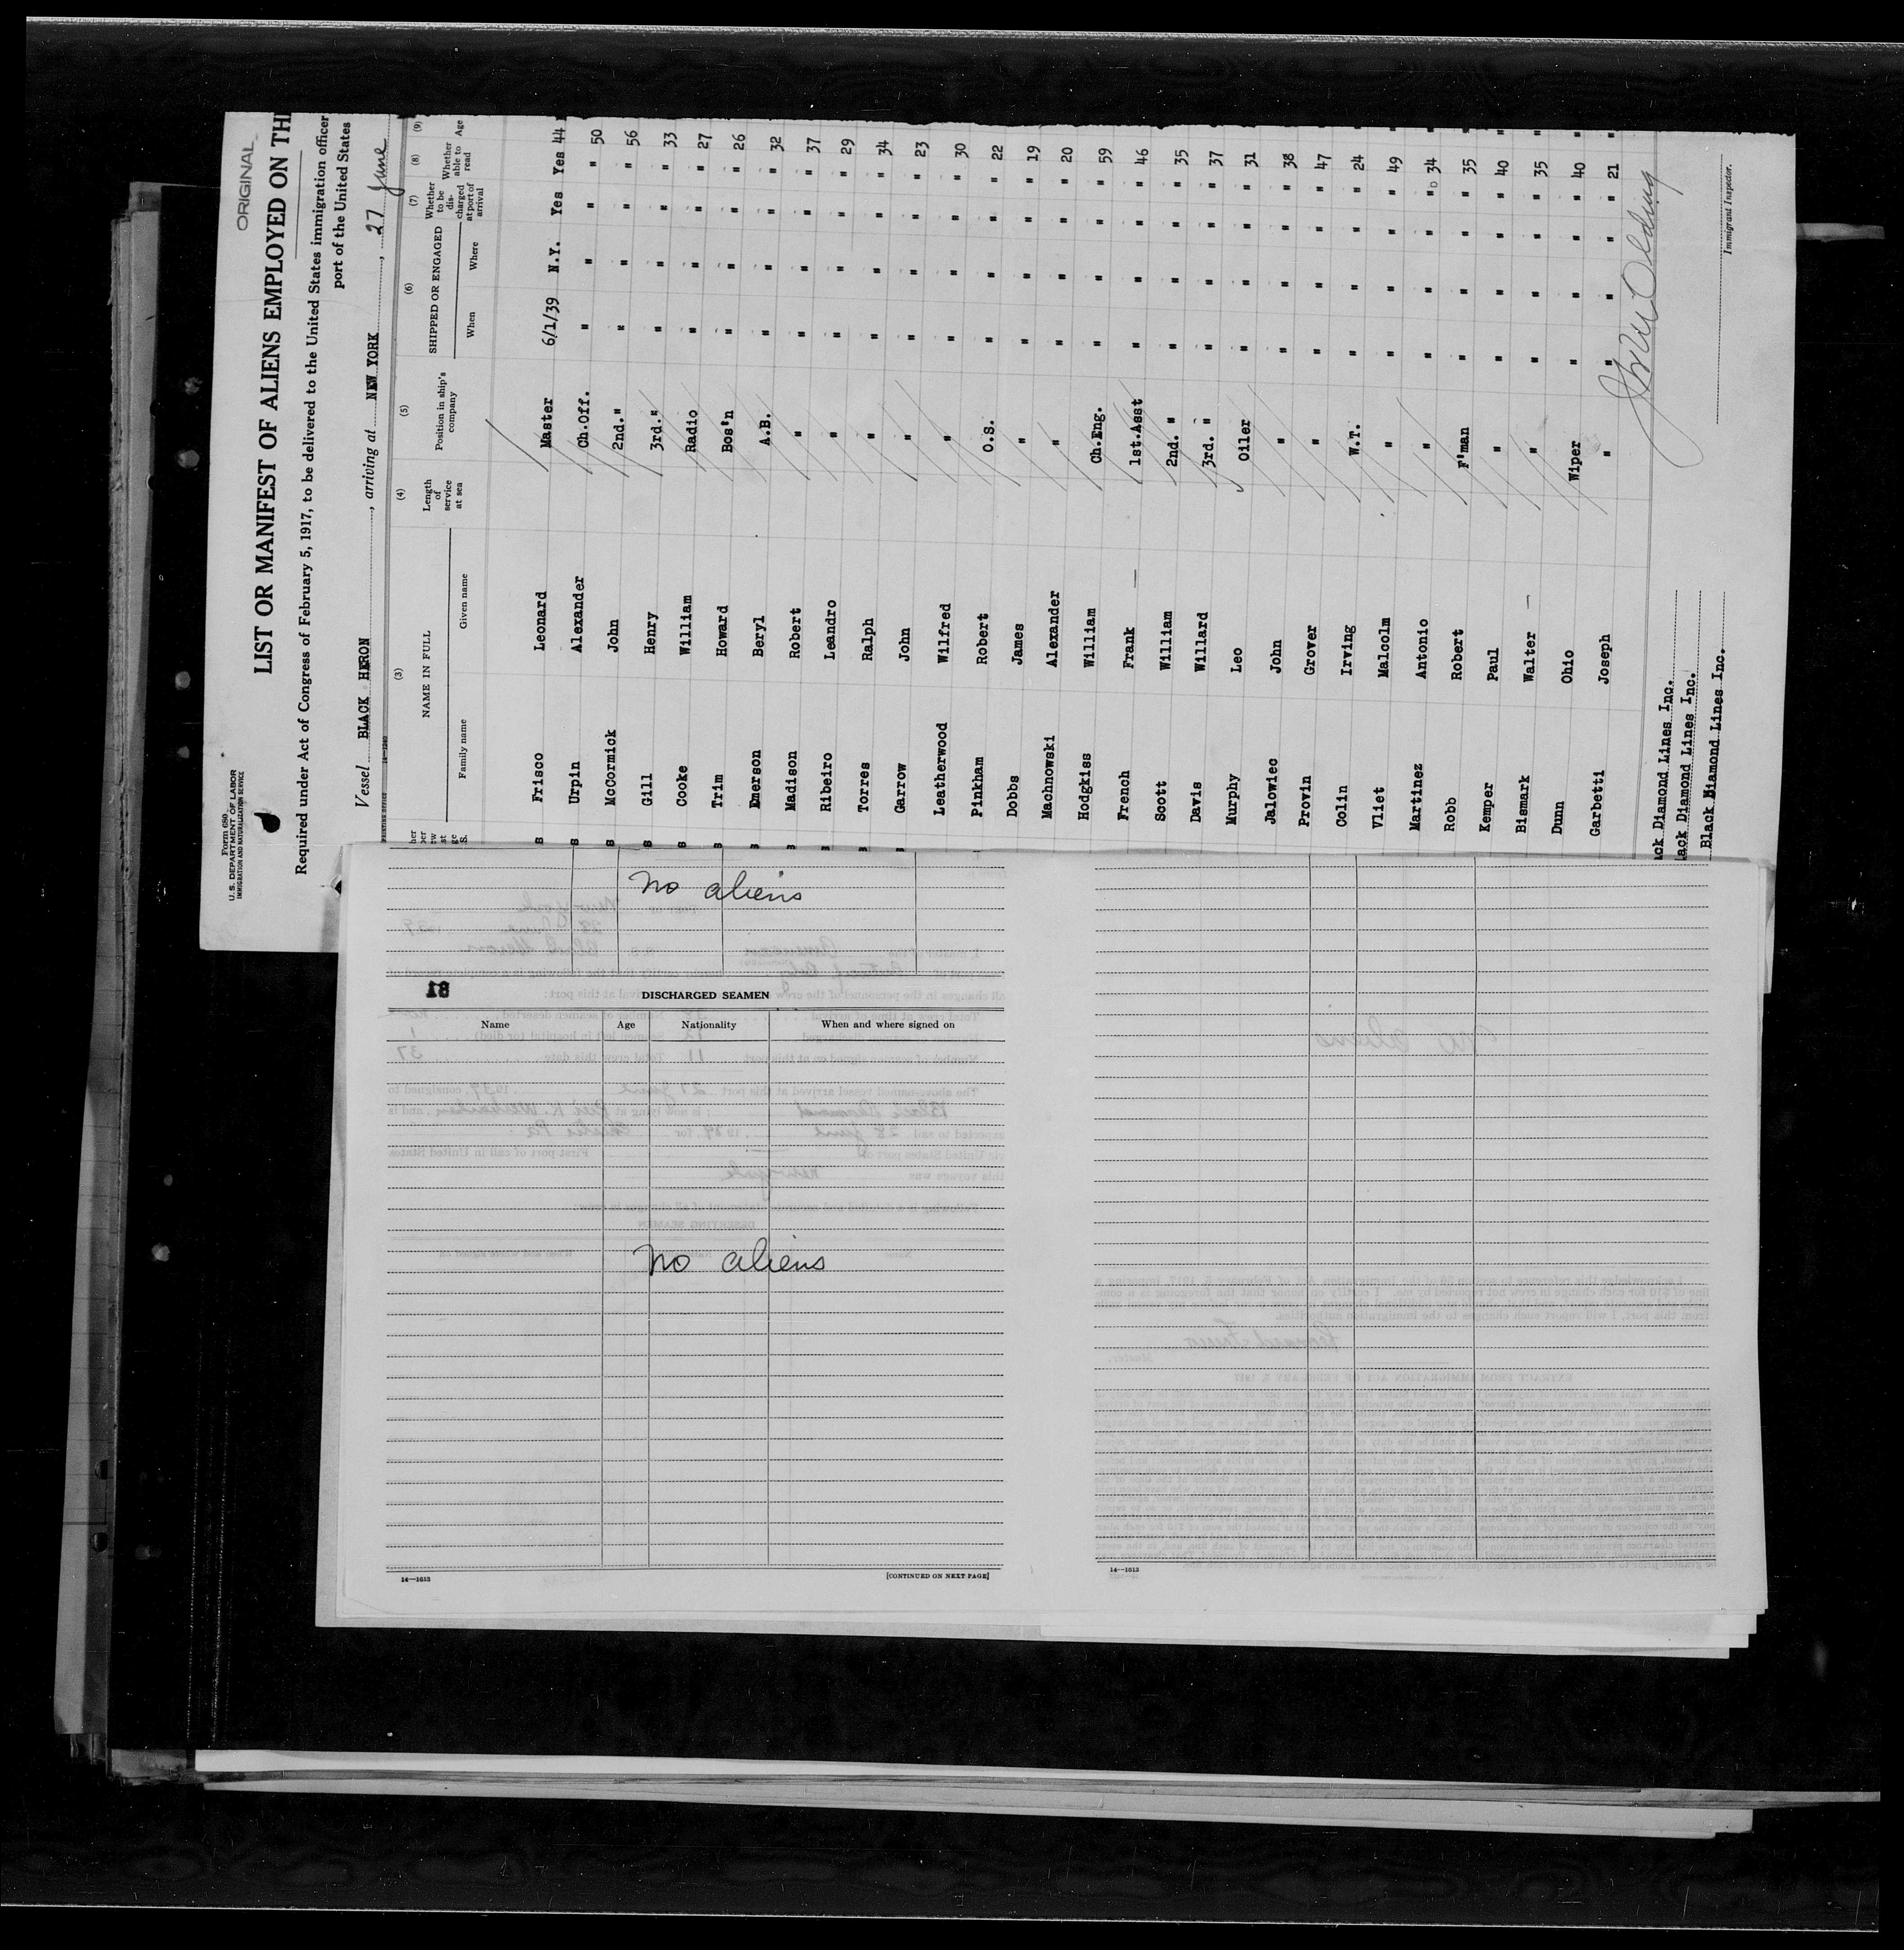 ORIGINAL
Form 680
U.S. DEPARTMENT OF LABOR
IMMIGRATION AND NATURALIZATION SERVICE
LIST OR MANIFEST OF ALIENS EMPLOYED ON TH
Required under Act of Congress of February 5, 1917, to be delivered to the United States immigration officer
port of the United States
Vessel BLACK HERON, arriving at NEW YORK, 27 June
(3) (4) (5) (6) (7) (8) (9)
NAME IN FULL Length of service at sea Position in ship's company SHIPPED OR ENGAGED Whether to be discharged at port of arrival Whether able to read Age
Family name Given name When Where
Frisco Leonard Master 6/1/39 N.Y. Yes Yes 44
Urpin Alexander Ch.Off. " " " " 50
McCormick John 2nd." " " " " 56
Gill Henry 3rd." " " " " 33
Cooke William Radio " " " " 27
Trim Howard Bos'n " " " " 26
Emerson Beryl A.B. " " " " 32
Madison Robert " " " " " 37
Ribeiro Leandro " " " " " 29
Torres Ralph " " " " " 34
Garrow John " " " " " 23
Leatherwood Wilfred " " " " " 30
Pinkham Robert O.S. " " " " 22
Dobbs James " " " " " 19
Machnowski Alexander " " " " " 20
Hodgkiss William Ch.Eng. " " " " 59
French Frank 1st.Asst " " " " 46
Scott William 2nd. " " " " " 35
Davis Willard 3rd. " " " " " 37
Murphy Leo Oiler " " " " 31
Jalowiec John " " " " " 38
Provin Grover " " " " " 47
Colin Irving W.T. " " " " 24
Vliet Malcolm " " " " " 49
Martinez Antonio " " " " " 34
Robb Robert F'man " " " " 35
Kemper Paul " " " " " 40
Bismark Walter " " " " " 35
Dunn Ohio Wiper " " " " 40
Garbetti Joseph " " " " " 21
ack Diamond Lines Inc.
lack Diamond Lines Inc.
Black Diamond Lines Inc.
Immigrant Inspector.
no aliens
81
DISCHARGED SEAMEN
Name Age Nationality When and where signed on
no aliens
14—1613 [CONTINUED ON NEXT PAGE]
14—1613